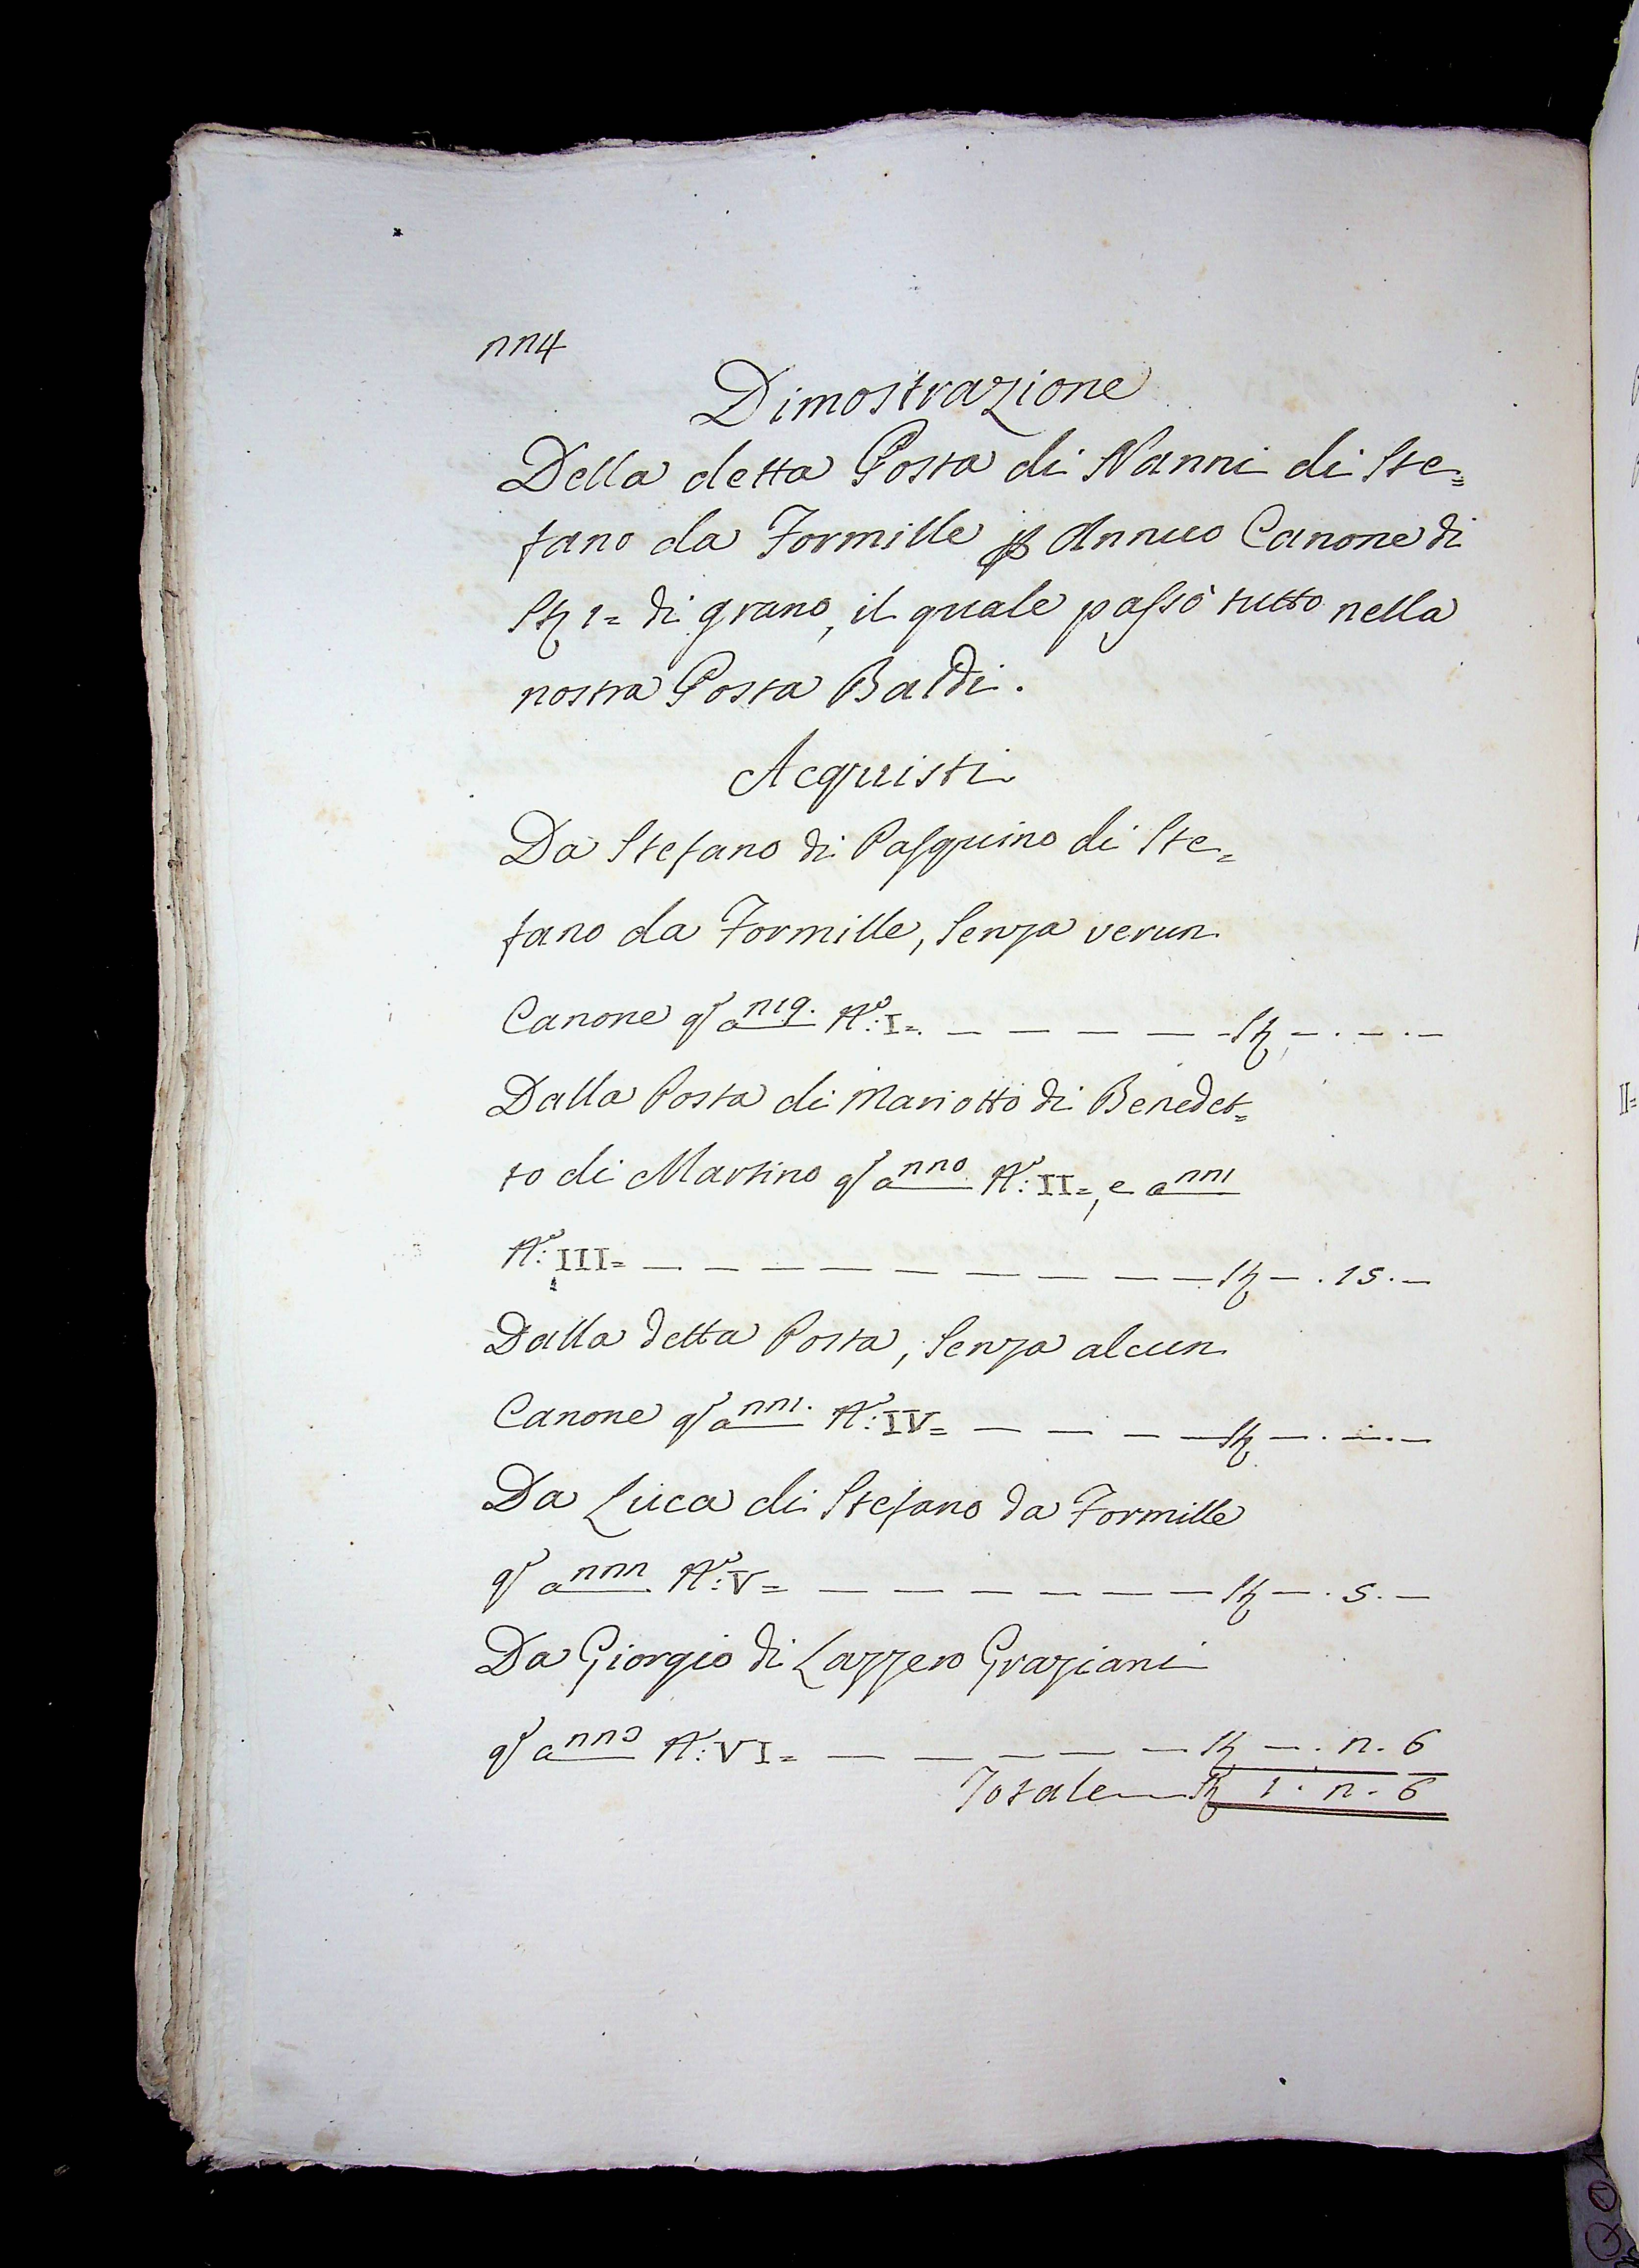 224
Dimostrazione
Della detta Posta di Nanni di Ste=
fano da Formille p Annuo Canone di
St 1= di grano, il quale passò tutto nella
nostra Posta Baldi.
Acquisti
Da Stefano di Pasquino di Ste=
fano da Formille, Senza verun
Canone q' a 219. N.º: I=. — — — — St — . — . —
Dalla Posta di Mariotto di Benedet=
to di Martino q' a 220 N.º: II=, e a 221
N.º: III= — — — — — — — — St — . 15. —
Dalla detta Posta, Senza alcun
Canone q' a 221. N.º: IV= — — — — St — . — . —
Da Luca di Stefano da Formille
q' a 222 N.º: V= — — — — — — St — . 5. —
Da Giorgio di Lazzero Graziani
q' a 223 N.º: VI= — — — — — St — . 2. 6
Totale — St 1. 2. 6
II=